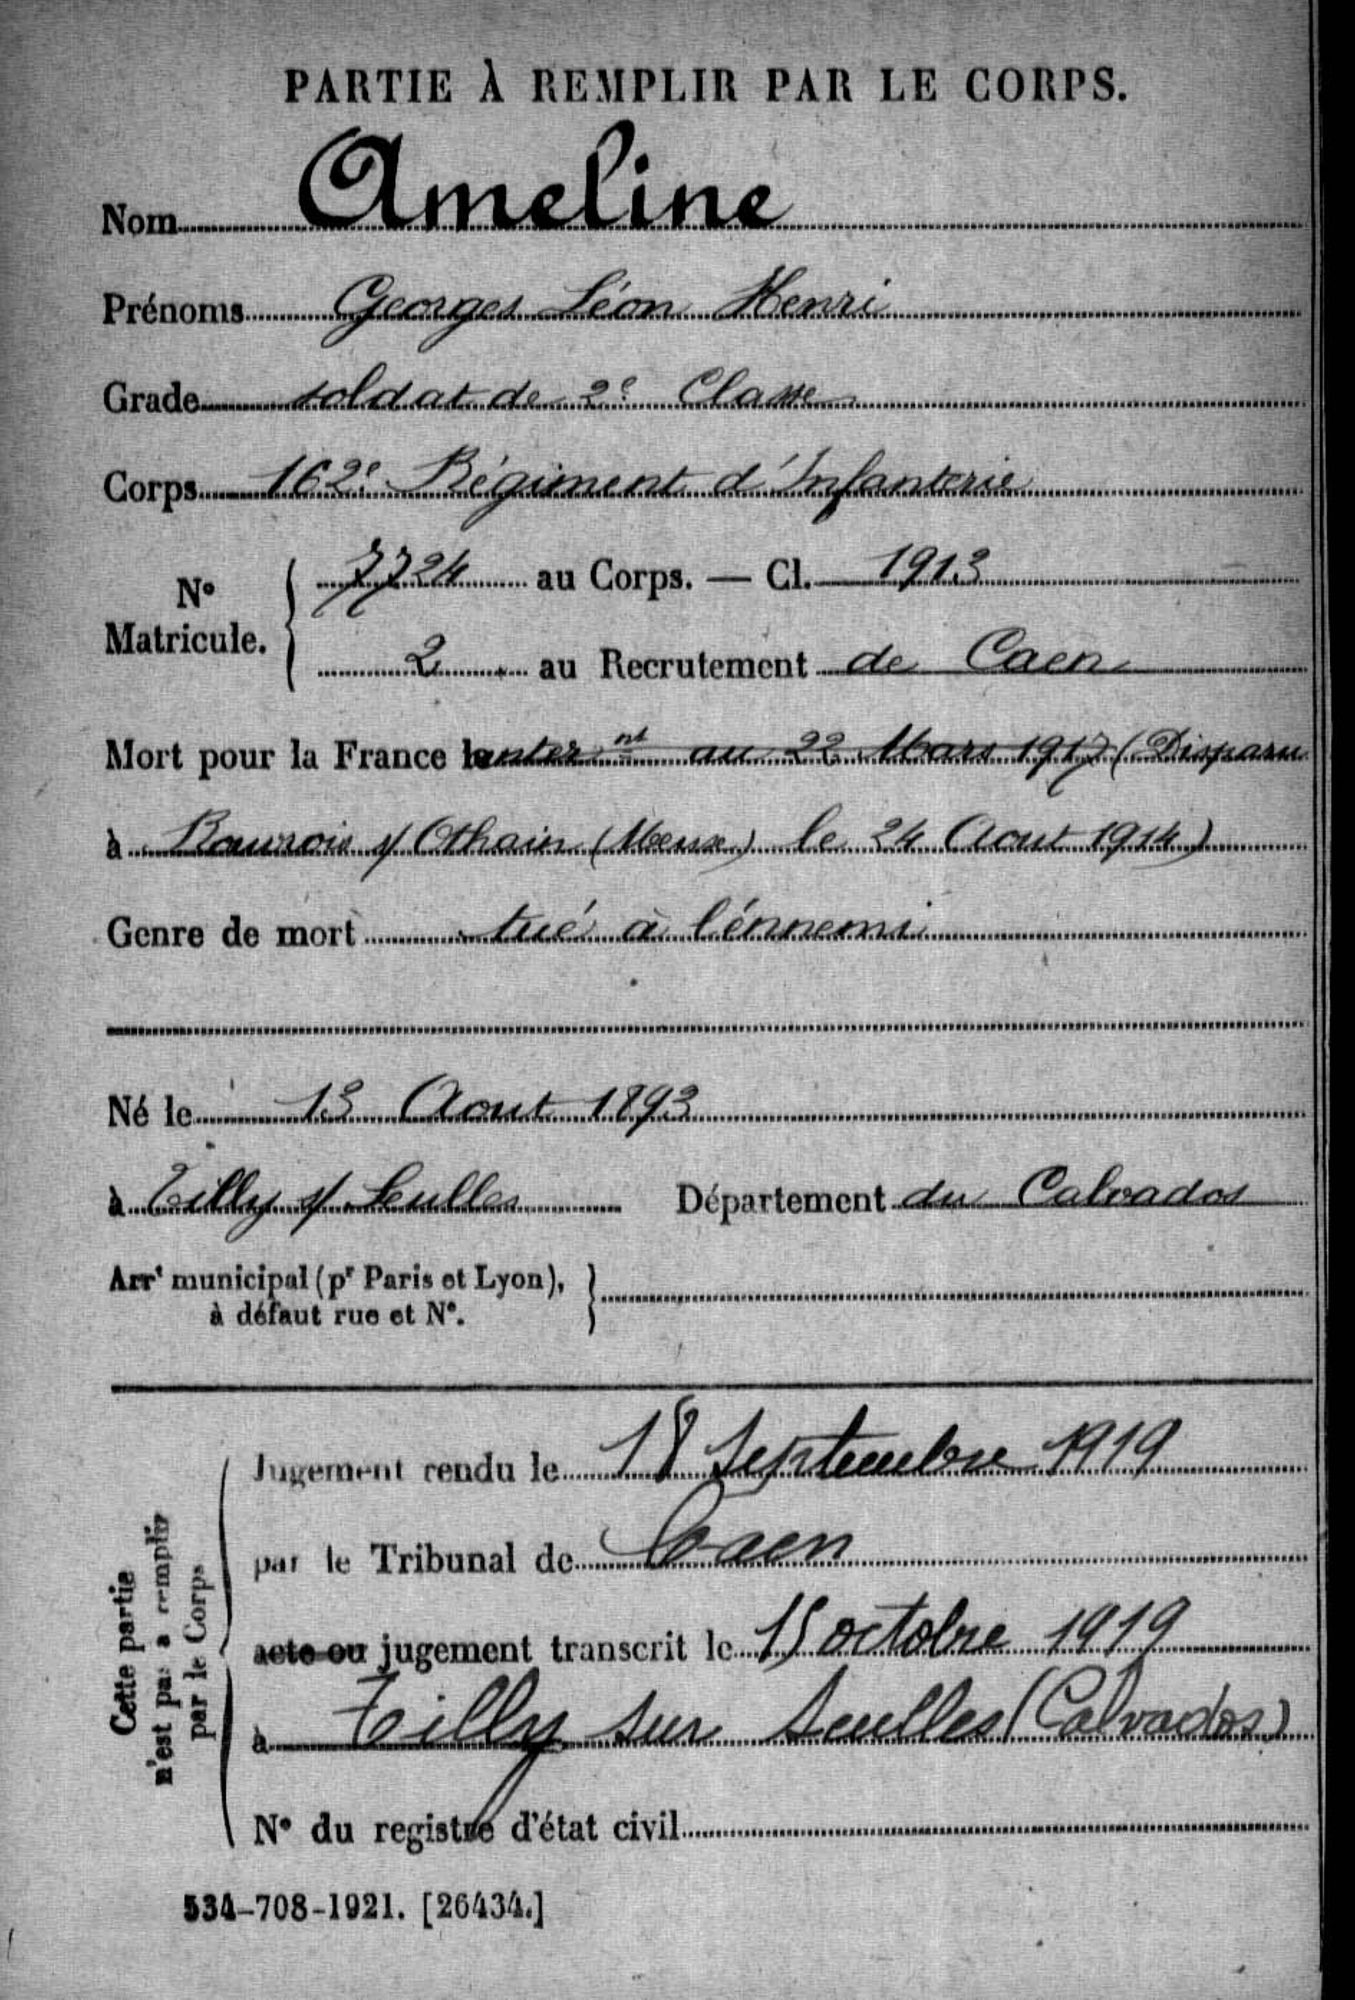 PARTIE À REMPLIR PAR LE CORPS.
Nom Ameline
Prénoms Georges Léon Henri
Grade soldat de 2e Classe
Corps 162e Régiment d'Infanterie
No Matricule. { 7724 au Corps. — Cl. 1913
2 au Recrutement de Caen
Mort pour la France le anter nt au 22 Mars 1917 (Disparu
à s/ Othain (Meuse) le 24 Aout 1914)
Genre de mort tué à l'énnemi
Né le 13 Aout 1893
à Tilly s/ Seulles Département du Calvados
Arrt municipal (pr Paris et Lyon), }
à défaut rue et No.
Cette partie n'est pas à remplir par le Corps
Jugement rendu le 18 Septembre 1919
par le Tribunal de Caen
acte ou jugement transcrit le 15 octobre 1919
à Tilly sur Seulles (Calvados)
No du registre d'état civil
534-708-1921. [26434.]